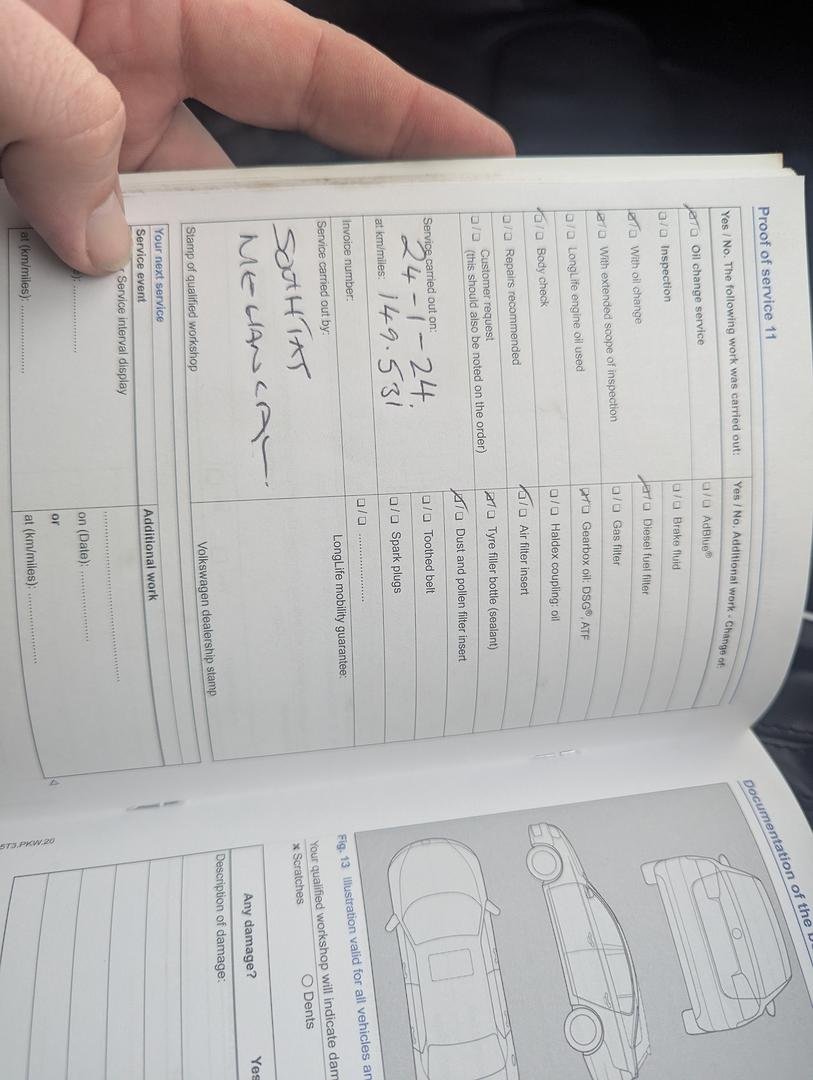 Proof of service 11
Yes / No. The following work was carried out:
☑/☐ Oil change service
☐/☐ Inspection
☑/☐ With oil change
☑/☐ With extended scope of inspection
☐/☐ LongLife engine oil used
☑/☐ Body check
☐/☐ Repairs recommended
☐/☐ Customer request
(this should also be noted on the order)
Service carried out on:
24-1-24.
at km/miles: 149.531
Invoice number:
Service carried out by:
Stamp of qualified workshop
Yes / No. Additional work - Change of:
☐/☐ AdBlue®
☐/☐ Brake fluid
☑/☐ Diesel fuel filter
☐/☐ Gas filter
☑/☐ Gearbox oil: DSG®, ATF
☐/☐ Haldex coupling: oil
☑/☐ Air filter insert
☑/☐ Tyre filler bottle (sealant)
☑/☐ Dust and pollen filter insert
☐/☐ Toothed belt
☐/☐ Spark plugs
☐/☐ ..................
LongLife mobility guarantee:
Volkswagen dealership stamp
Your next service
Service event
Service interval display
at (km/miles): ..................
Additional work
on (Date): ..................
or
at (km/miles): ..................
5T3.PKW.20
Documentation of the
Fig. 13 Illustration valid for all vehicles
Your qualified workshop will indicate
× Scratches
○ Dents
Any damage?
Yes
Description of damage: